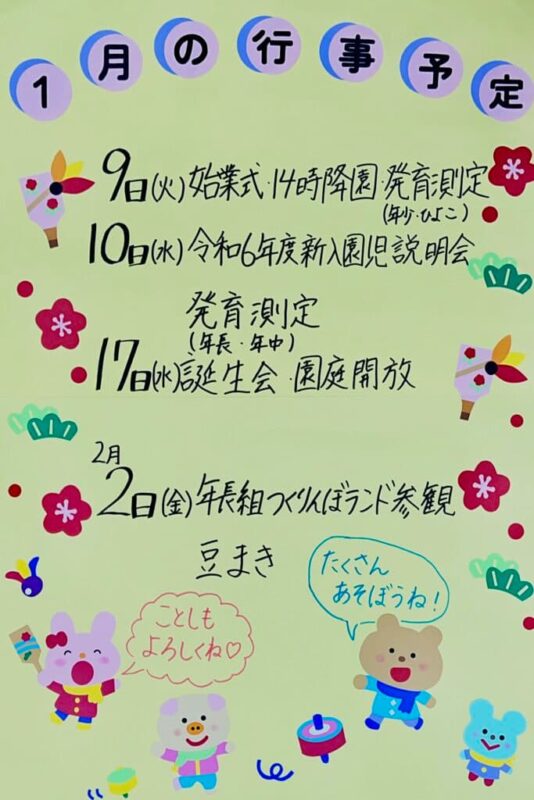 1月の行事予定
9日(火)始業式・14時降園・発育測定
(年少・ひよこ)
10日(水)令和6年度新入園児説明会
発育測定
(年長・年中)
17日(水)誕生会・園庭開放
2月
2日(金)年長組つくりんぼランド参観
豆まき
たくさん
あそぼうね!
ことしも
よろしくね♡